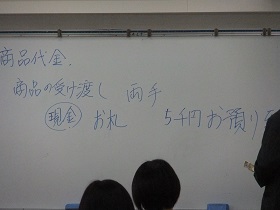 商品代金.
商品の受け渡し 両手
現金 おれ 5千円お預り